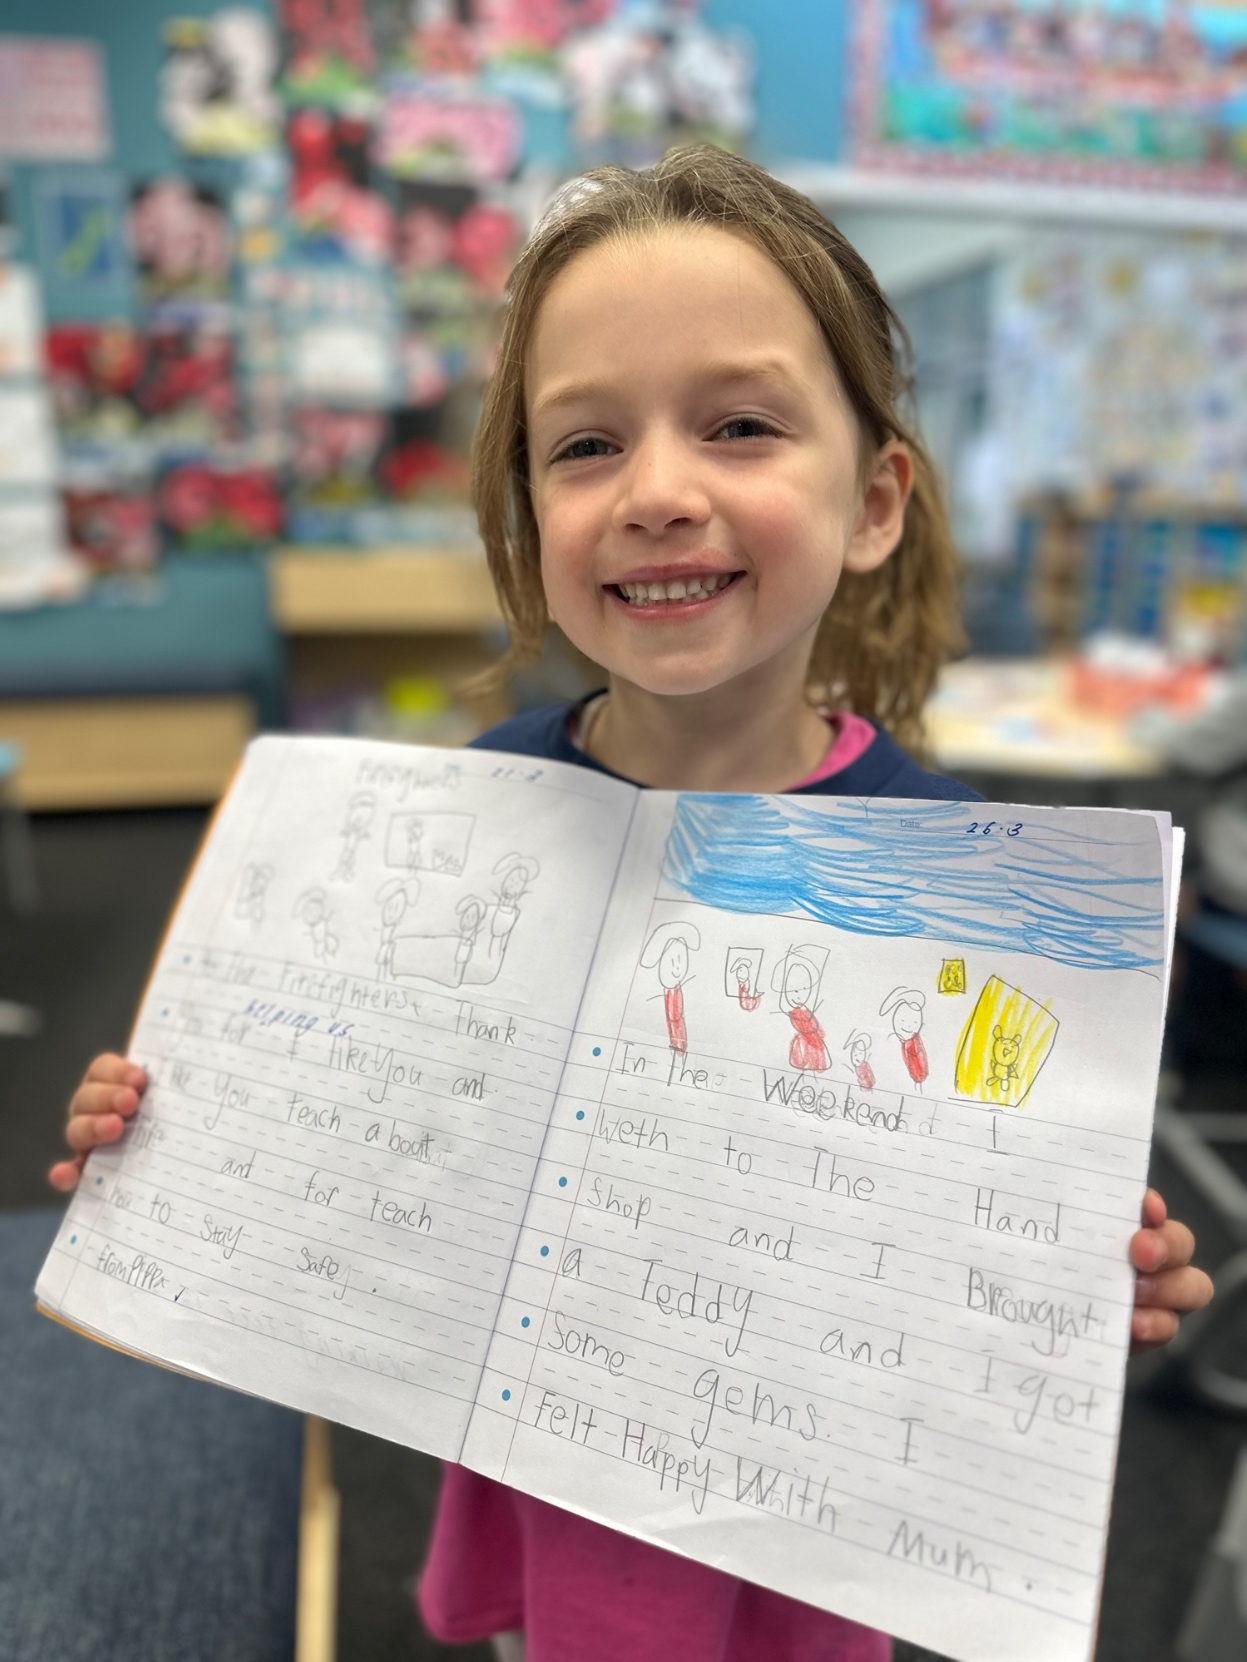 Firefighters 21.3
The Firefighters. Thank
helping us
for I like You and
like You teach about
life and for teach
how to Stay Safe.
from Pippa
Date: 26.3
In The Weekend I
weth to The Hand
Shop and I Brought
a Teddy and I get
Some gems. I
Felt Happy With Mum.